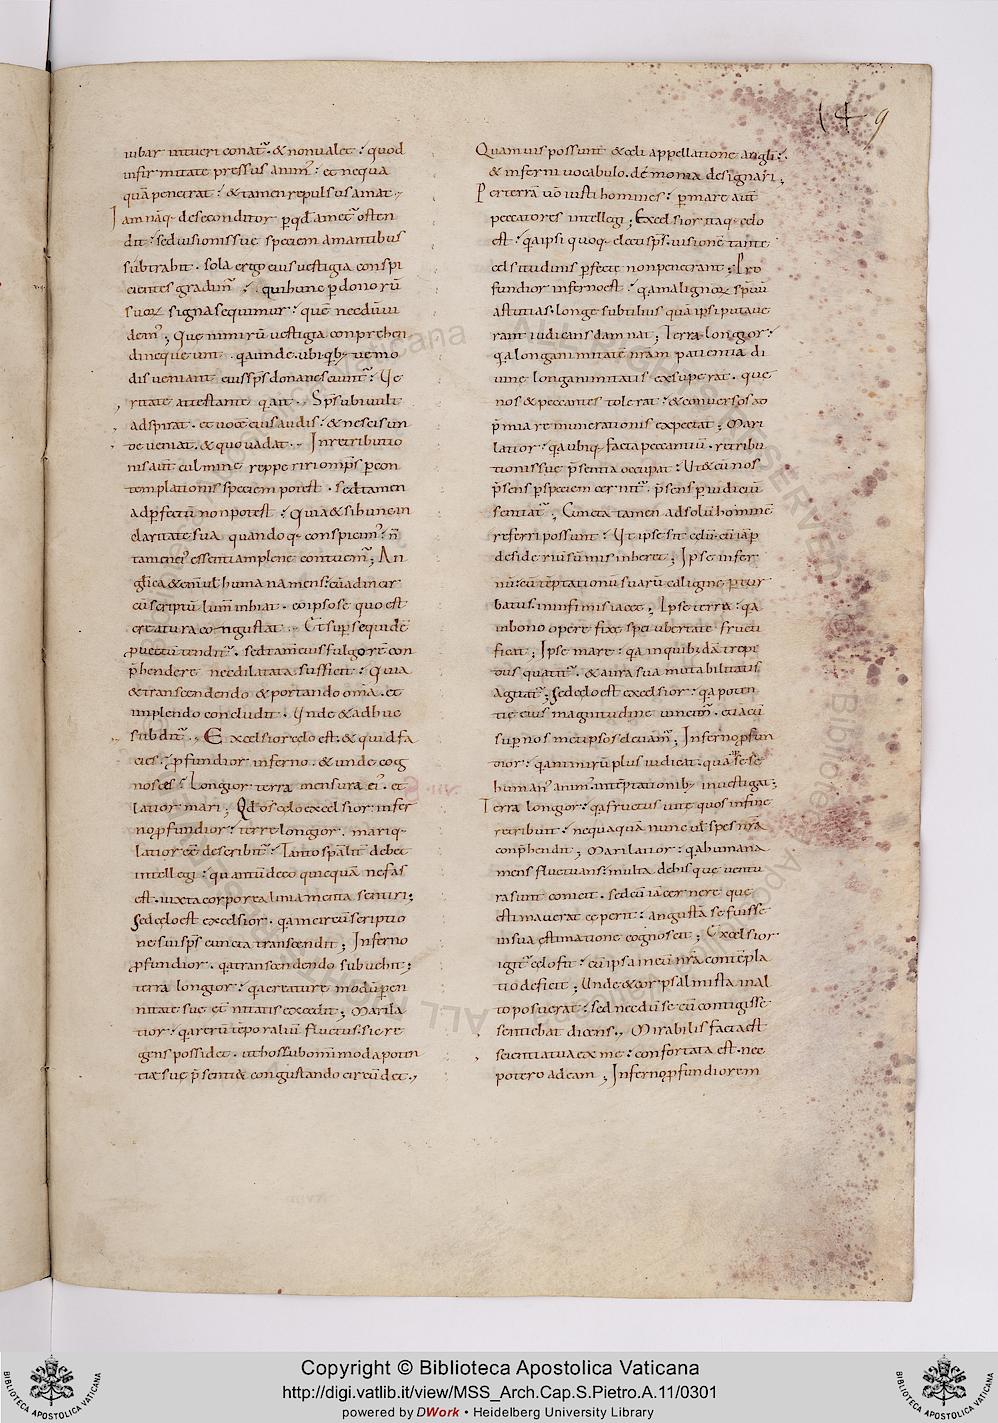 149
iubar intueri conat᷑. & non ualet: quod
infirmitate pressus anim᷒: et nequa
quā penetrat: & tamen repulsus amat.,
Iam nāq· de se conditor
dit: sed uisionis suę speciem amantibus
subtrahit. sola ergo eius uestigia conspi
cientes gradim᷒: quibun c p donorū
suoꝝ signa sequimur: quē necdū ui
dem᷒; Que nimirū uestigia conprehen
di nequeunt. q̄a unde. ubi. q̄b; ue mo
dis ueniant eius sp̄s dona nesciunt᷑: Ve
ritate attestante q̄ ait., Sp̄s ubi uult
adspirat. et uocē eius audis: & nescis un
de ueniat. & quo uadat., In retributio
nis aut̄ culmine repperiri omp̄s p con
templationis speciem potest. sed tamen
ad pfectū non potest: Quia & si hunc in
claritate sua quandoq· conspicim᷒: n̄
tamen ei᷒ essentiam plene contuem᷑; An
gelica & enī ul humana mens: cū ad incir
cūscriptū lum̄ inhiat. eo ipso se quo est
creatura congustat., Et sup se quidē
ꝓuectū tendit᷑. sed tam̄ eius fulgorē con
p̄hendere nec dilatata sufficit: Quia
& transcendendo & portando om̄a. et
implendo concludit. Unde & adhuc
subdit᷑., Excelsior cęlo est. & quid fa
cies: ꝓfundior inferno. & unde cog
nosces: Longior terra mensura ei᷒. et
latior mari; Qđ ds cęlo excelsior. infer
no ꝓfundior: terre longior. mariq·
latior eē describit᷑: Tanto sp̄alit̄ debet
intellegi: quantū de eo quicquā nefas
est. iuxta corporea liniamenta sentiri;
Sed cęlo est excelsior. q̄a incircūscriptio
ne sui sp̄s cuncta transcendit; Inferno
ꝓfundior. q̄a transcendendo subuehit;
terra longior: q̄a creature modū peren
nitate suę etnitatis excedit; Mari la
tior: q̄a rerū temporaliū fluctus. sic re
gens possidet. ut hos sub omnimoda poten
tię suę p̄sentia congustando circūdet.,
Quamuis possunt & cęli appellatione angli:
& inferni uocabulo. demonia designari;
Per terrā uō iusti homines: p mare aut̄
peccatores intellegi; Excelsior itaq· cęlo
est: q̄a ipsi quoq· electi sp̄s. uisionē tantę
celsitudinis pfecte non penetrant; Pro
fundior inferno est: q̄a malignoꝝ sp̄uū
astutias. longe subtilius quā ipsi putaue
rant iudicans damnat; Terra longior:
q̄a longanimitatē nr̄am patientia di
uine longanimitatis exsuperat. que
nos & peccantes tolerat: & conuersos ad
p̄mia remunerationis expectat; Mari
latior: q̄a ubiq· facta peccantiū. retribu
tionis suę p̄sentia occupat: Ut & cū nos
p̄sens p speciem cernit᷑. p̄sens p iudiciū
sentiat᷑; Cuncta tamen ad solū hominē
referri possunt: Ut ipse sit cęlū. cū iā p
desideriū sūmis inheret; Ipse infer
nū: cū temptationū suarū caligne ptur
batus. in infimis iacet; Ipse terra: q̄a
in bono opere fixę spei ubertate fructi
ficat; Ipse mare: q̄a in quib;dā trepi
dus quatit᷑. & aura suę mutabilitatis
agitat᷑; Sed cęlo est excelsior: q̄a poten
tię eius magnitudine uincim᷒. etiā cū
sup nos metipsos eleuam᷑; Inferno ꝓfun
dior: q̄a nimirū plus iudicat. quā se se
human᷒ anim᷒. in temptationib; inuestigat;
Terra longior: q̄a fructus uitę quos in fine
retribuit: nequaquā nunc ul spes nr̄a
conp̄hendit; Mari latior: q̄a humana
mens fluctuans: multa de his que uentu
ra sunt conicit. sed cū iā cernere que
estimauerat ceperit: angustā se fuisse
in sua estimatione cognoscit; Excelsior
igit᷑ cęlo fit: cū ipsa in eū nr̄a contēpla
tio deficit; Unde & cor psalmista in al
to posuerat: sed necdū se eū contigisse
sentiebat dicens., Mirabilis facta est
scientia tua ex me: confortata est. nec
potero ad eam; Inferno ꝓfundiorem
Copyright © Biblioteca Apostolica Vaticana
http://digi.vatlib.it/view/MSS_Arch.Cap.S.Pietro.A.11/0301
powered by DWork • Heidelberg University Library
BIBLIOTECA APOSTOLICA VATICANA
BIBLIOTECA APOSTOLICA VATICANA